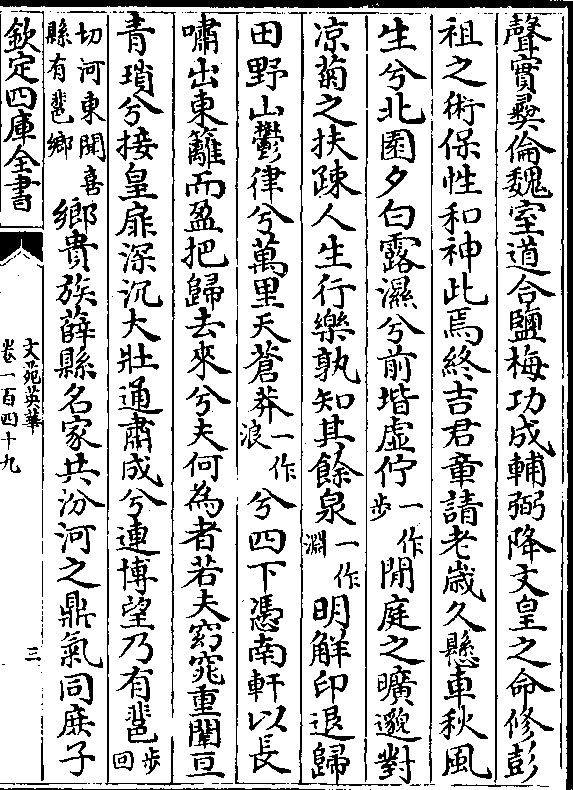 聲實彞倫魏室道合鹽梅功成輔弼降文皇之命修彭
祖之術保性和神此焉終吉君章請老歲久懸車秋風
生兮北園夕白露濕兮前堦虛佇一作步閒庭之曠邈對
凉菊之扶踈人生行樂孰知其餘泉一作淵明解印退歸
田野山鬱律兮萬里天蒼莽一作浪兮四下憑南軒以長
嘯出東籬而盈把歸去來兮夫何為者若夫窈窕重闈亘
青瑣兮接皇扉深沉大壯通肅成兮連博望乃有䓲步回
切河東聞喜縣有䓲鄉鄉貴族薛縣名家共汾河之鼎氣同庶子
欽定四庫全書
文苑英華
卷一百四十九
三